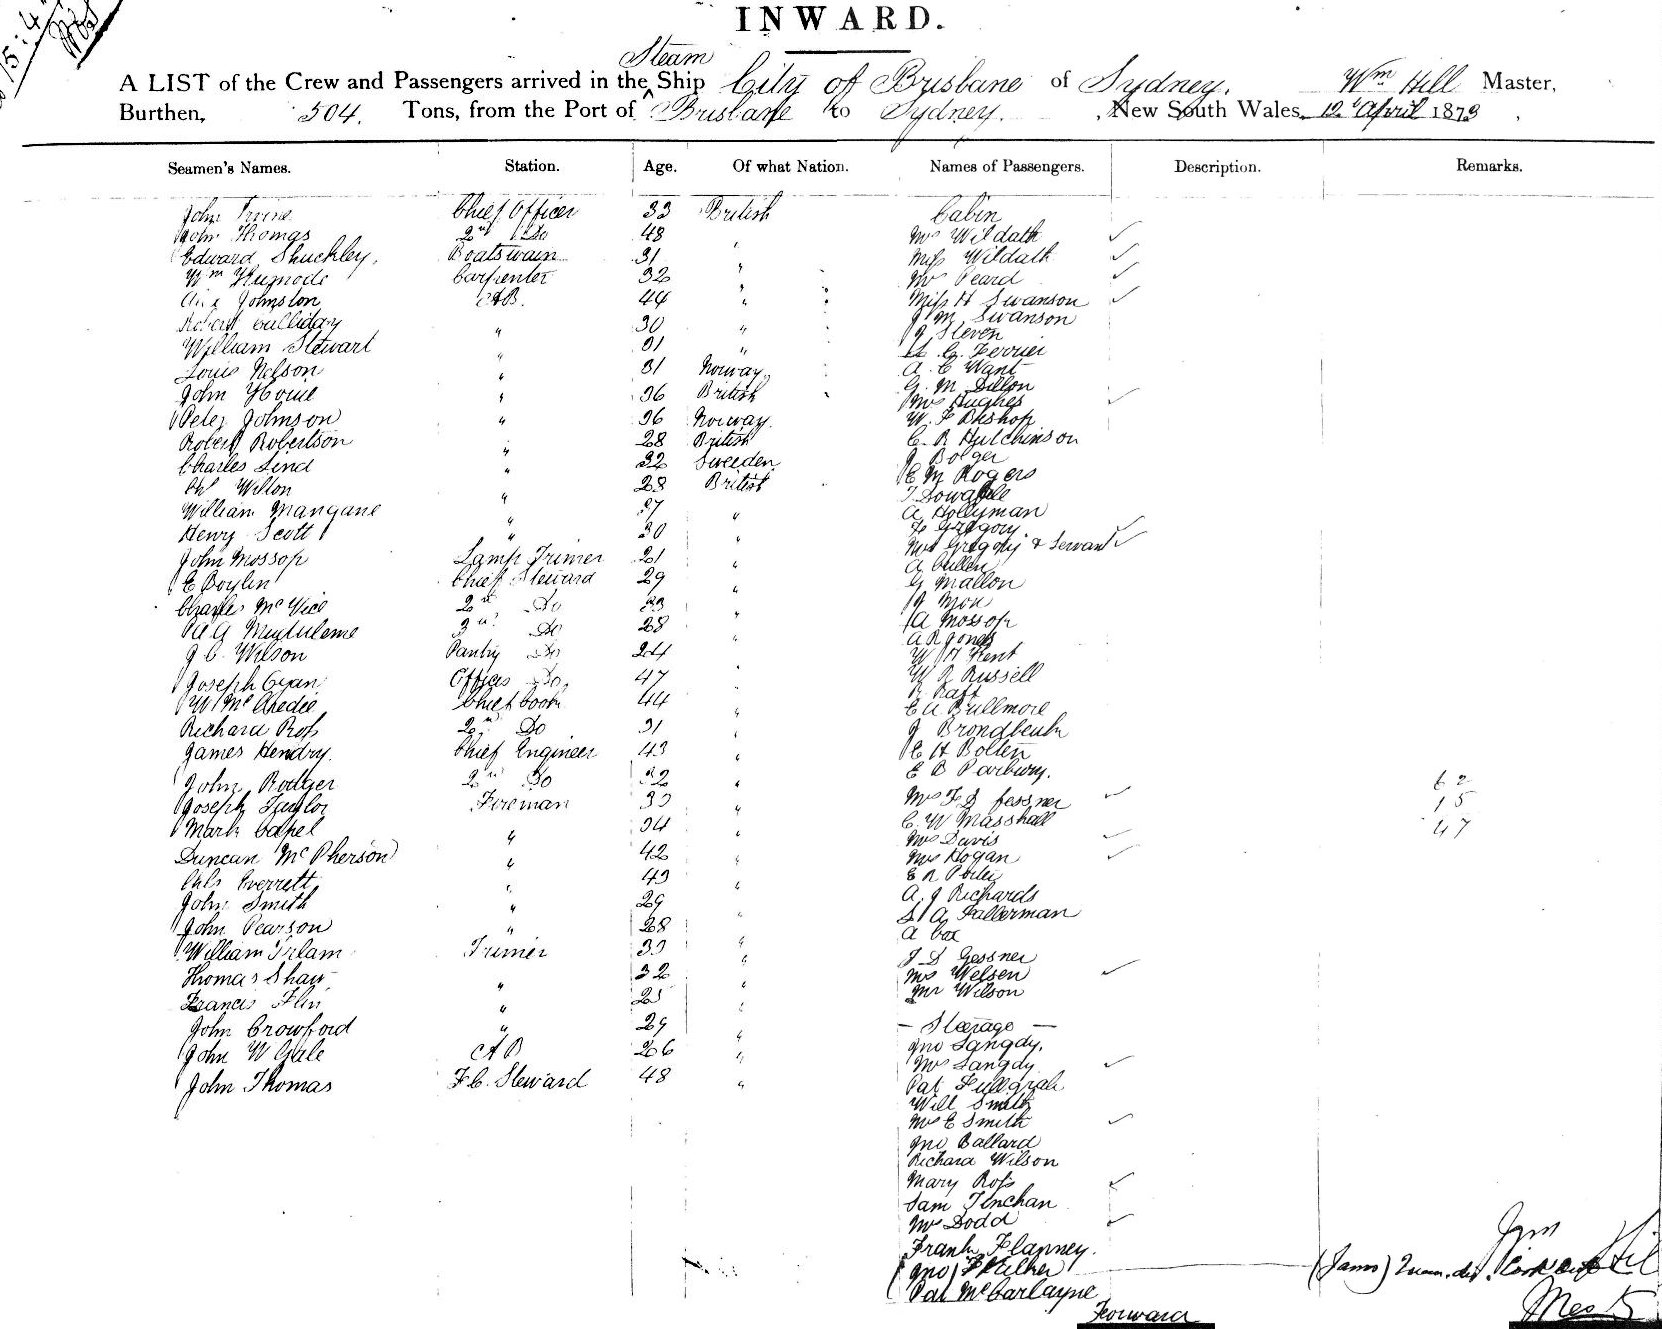 15:4
INWARD.
Steam
A LIST of the Crew and Passengers arrived in the Ship City of Brisbane of Sydney. Wm Hill Master,
Burthen, 504. Tons, from the Port of Brisbane to Sydney. New South Wales, 12 April 1873
Seamen's Names. Station. Age. Of what Nation. Names of Passengers. Description. Remarks.
John Irvine Chief Officer 33 British
John Thomas 2nd Do 48 "
Edward Shuckley, Boatswain 31 "
Wm Carpenter 32 "
Johnston AB. 44 "
Robert Calliday " 30 "
William Stewart " 31 "
Louis Nelson " 31 Norway,
John Howie " 36 British
Peter Johnson " 36 Norway.
Robert Robertson 28 British
Charles Lind " 32 Sweden
Wilton " 28 British
William Mangane " 37 "
Henry Scott " 30 "
John Mossop Lamp Trimer 21 "
E Boylin Chief Steward 29 "
Charles McVice 2nd Do 33 "
3rd Do 28 "
J C Wilson Pantry Do 24
Joseph Cyan Offices Do, 47 "
W McChedie Chief Cook 44 "
Richard Ross 2nd Do 31 "
James Hendry. Chief Engineer 43 "
John Rodger 2nd Do 32 "
Joseph Taylor Fireman 33 "
Mark Capel " 34 "
Duncan McPherson " 42 "
Everrett " 43 "
John Smith " 29
John Pearson " 28
William Irlam Trimer 33 "
Thomas Shaw " 32 "
Francis Flin " 25 "
John Crowford " 29 "
John W Gale AB 26 "
John Thomas F.C. Steward 48 "
Cabin
Mrs Wildath
Miss Wildath
Mrs Peard
Miss H Swanson
J M Swanson
J Steven
Ferrier
A. C Want
G. M Dillon
Mrs Hughes
W. F Bishop
C. R Hutchinson
J Bolger
E M Rogers
A Hollyman
F Gregory
Mrs Gregory & Servant
A Cullen
G Mallon
J Mon
A Mossop
A R Jones
W H Kent
W R Russell
R Raff
E A Bullmore
J
E H Bolten
E B Parbury.
Mrs F D Jessner
C. W Marshall
Mrs Davis
Mrs Hogan
E R
A. J Richards
L A Fallerman
A Cox
J D Gessner
Mrs Welsen
Mr Wilson
— Steerage —
Jno Langdy.
Mrs Langdy
Pat
Will Smith
Mrs E Smith
Jno Ballard
Richard Wilson
Mary Ross
Sam Tinchan
Mrs Dodd
Frank Flanney.
Jno
Pat McCarlayne
Forward
62
15
47